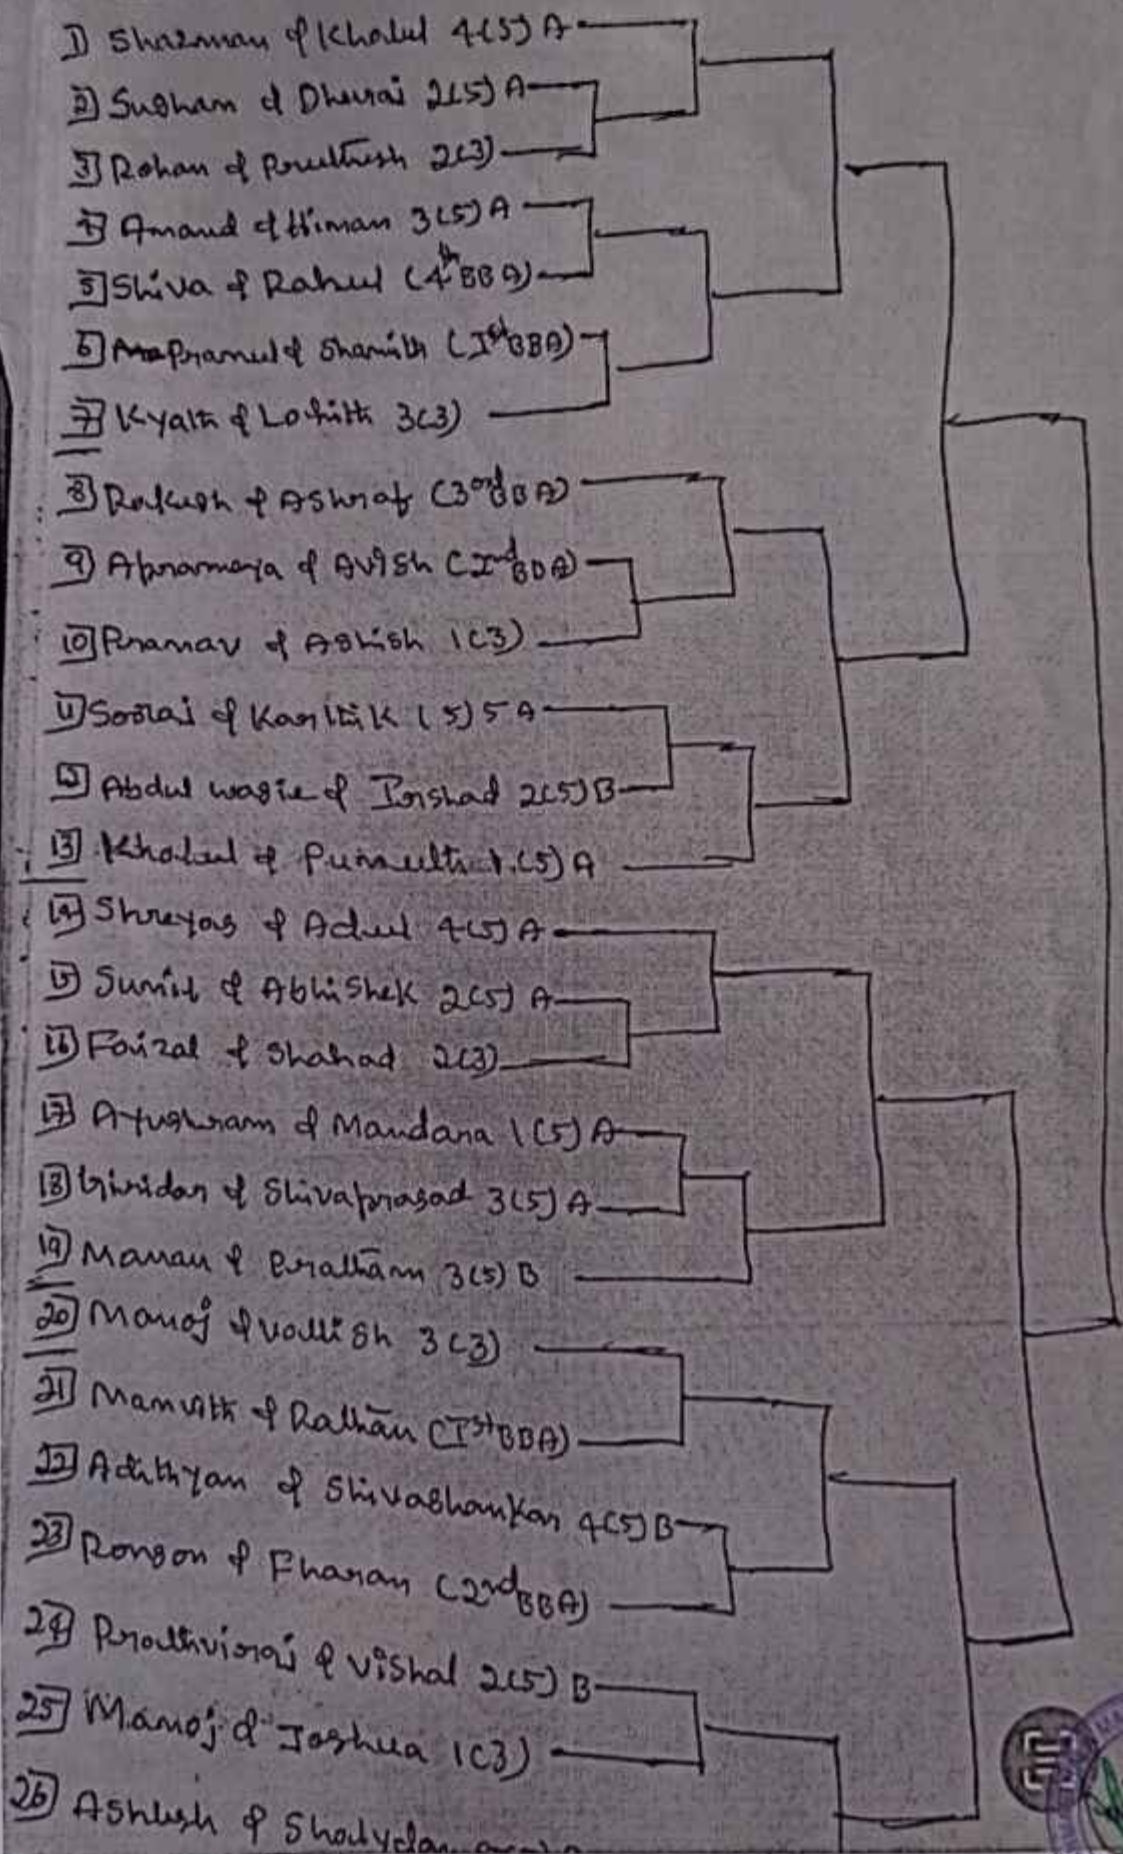 1) Sharman & Khalil 4(5) A
2) Susham & Dheeraj 2(5) A
3) Rohan & 2(3)
4) Amand & Himan 3(5) A
5) Shiva & Rahul (4th BBA)
6) & Shamith (Ist BBA)
7) Kyath & Lohith 3(3)
8) Rakesh & Ashraf (3rd BBA)
9) Apramaya & Avish (2nd BBA)
10) Pranav & Ashish 1(3)
11) Sooraj & Karthik (5) 5 A
12) Abdul wagie & Irshad 2(5) B
13) & 1.(5) A
14) Shreyas & 4(5) A
15) Sumit & Abhishek 2(5) A
16) Faizal & Shahad 2(3)
17) Ayushram & Mandana 1(5) A
18) Giridar & Shivaprasad 3(5) A
19) Manan & Pratham 3(5) B
20) Manoj & Vallish 3(3)
21) Manvith & (Ist BBA)
22) Adithyan & Shivashankar 4(5) B
23) Ronson & Fharan (2nd BBA)
24) Prathviraj & Vishal 2(5) B
25) Manoj & Joshua 1(3)
26) &